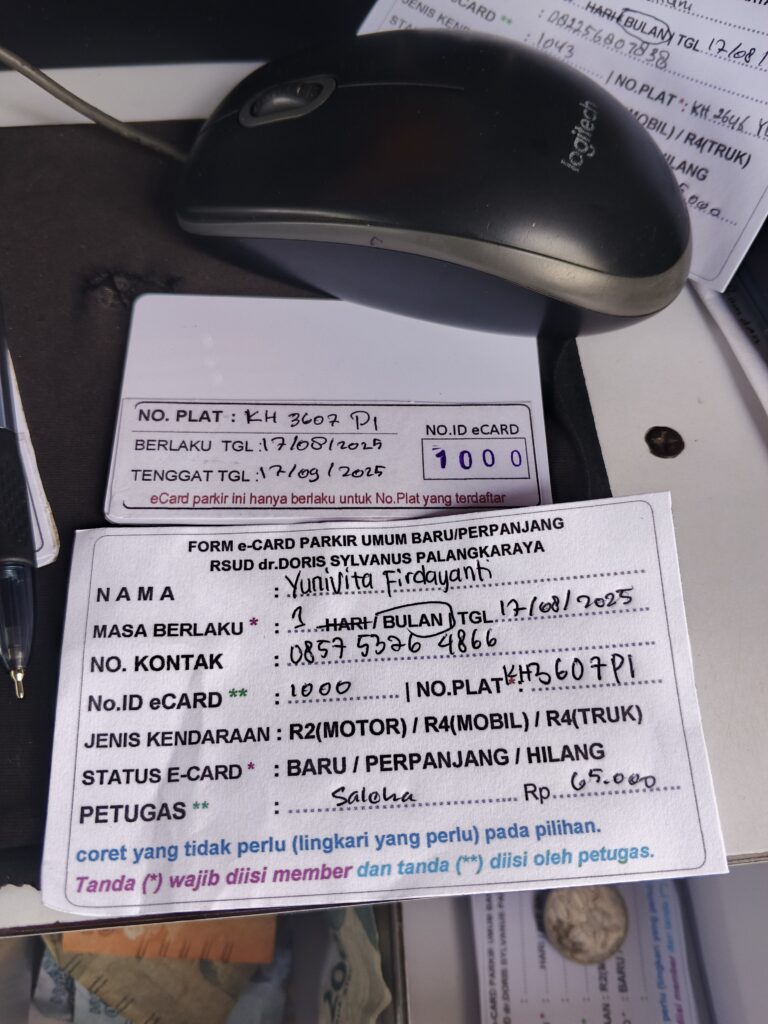 eCARD **
HARI / BULAN | TGL 17/08/
JENIS KENDARA
: 082256807838
1043
| NO.PLAT *: KH 2646
MOBIL) / R4(TRUK)
HILANG
logitech
NO. PLAT : KH 3607 PI
BERLAKU TGL : 17/08/2025
TENGGAT TGL : 17/09/2025
NO.ID eCARD
1000
eCard parkir ini hanya berlaku untuk No.Plat yang terdaftar
FORM e-CARD PARKIR UMUM BARU/PERPANJANG
RSUD dr.DORIS SYLVANUS PALANGKARAYA
NAMA : Yunivita Firdayanti
MASA BERLAKU * : 1 HARI / BULAN | TGL 17/08/2025
NO. KONTAK : 0857 5326 4866
No.ID eCARD ** : 1000 | NO.PLAT *: KH3607PI
JENIS KENDARAAN : R2(MOTOR) / R4(MOBIL) / R4(TRUK)
STATUS E-CARD * : BARU / PERPANJANG / HILANG
PETUGAS ** : Saloha Rp 65.000
coret yang tidak perlu (lingkari yang perlu) pada pilihan.
Tanda (*) wajib diisi member dan tanda (**) diisi oleh petugas.